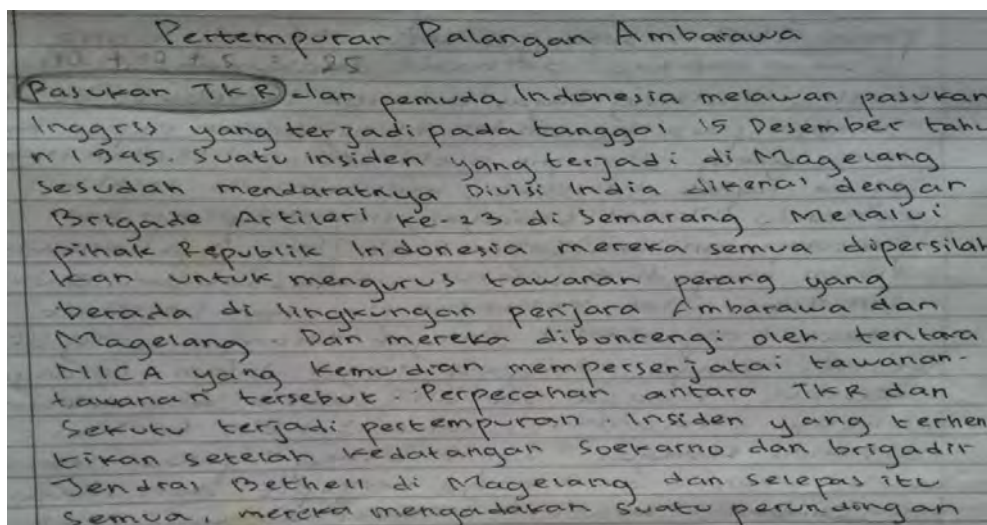 Pertempuran Palangan Ambarawa
10 + 10 + 5 = 25
Pasukan TKR dan pemuda Indonesia melawan pasukan
Inggris yang terjadi pada tanggal 15 Desember tahu
n 1945. Suatu insiden yang terjadi di Magelang
sesudah mendaratnya Divisi India dikenal dengan
Brigade Artileri ke-23 di Semarang. Melalui
pihak Republik Indonesia mereka semua dipersilah
kan untuk mengurus tawanan perang yang
berada di lingkungan penjara Ambarawa dan
Magelang. Dan mereka diboncengi oleh tentara
NICA yang kemudian mempersenjatai tawanan-
tawanan tersebut. Perpecahan antara TKR dan
Sekutu terjadi pertempuran. Insiden yang terhen
tikan setelah kedatangan Soekarno dan brigadir
Jendral Bethell di Magelang dan selepas itu
semua, mereka mengadakan suatu perundingan